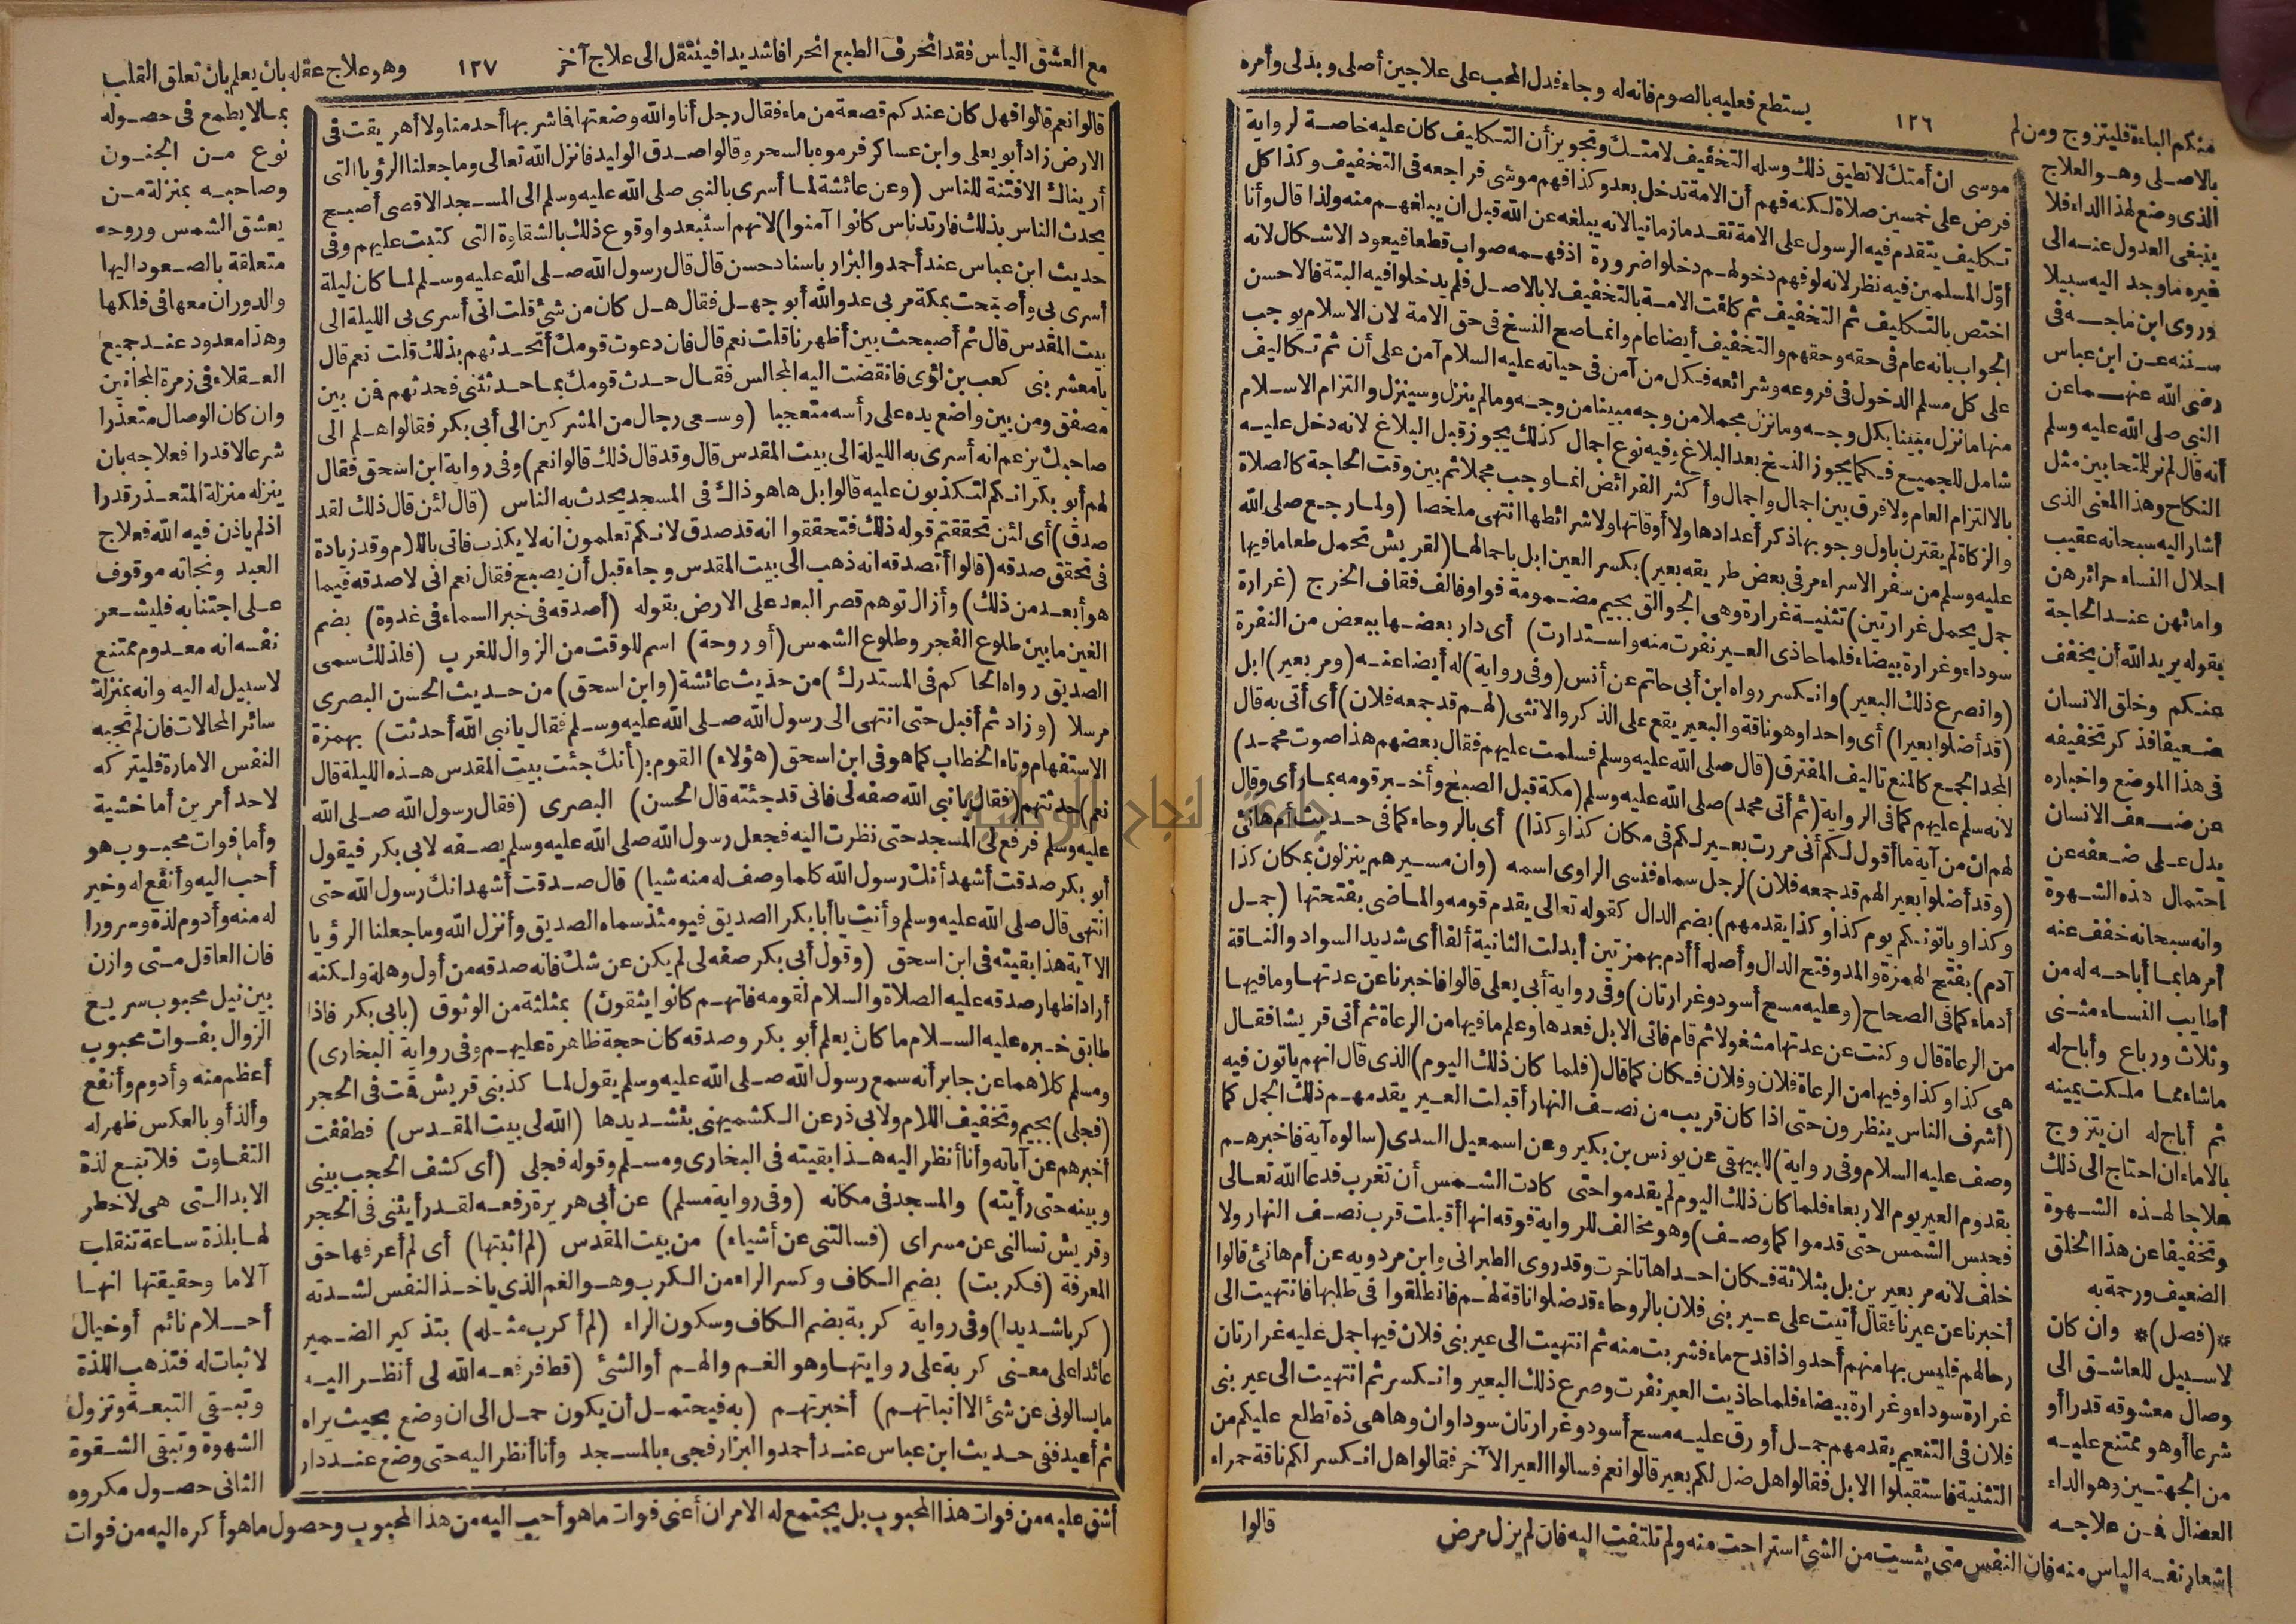 يستطع فعليه بالصوم فانه له وجاء فدل المحب على علاجين أصلى وبدلى وأمره
١٢٦
منكم الباءة فليتزوج ومن لم
بالاصلى وهو العلاج
الذى وضع لهذا الداء فلا
ينبغى العدول عنه الى
غيره ما وجد اليه سبيلا
وروى ابن ماجه فى
سننه عن ابن عباس
رضى الله عنهما عن
النبى صلى الله عليه وسلم
أنه قال لم نر للمتحابين مثل
النكاح وهذا المعنى الذى
أشار اليه سبحانه عقيب
احلال النساء حرائرهن
وامائهن عند الحاجة
بقوله يريد الله أن يخفف
عنكم وخلق الانسان
ضعيفا فذكر تخفيفه
فى هذا الموضع واخباره
عن ضعف الانسان
يدل على ضعفه عن
احتمال هذه الشهوة
وانه سبحانه خفف عنه
أمرها بما أباحه له من
أطايب النساء مثنى
وثلاث ورباع وأباح له
ما شاء مما ملكت يمينه
ثم أباح له ان يتزوج
بالاماء ان احتاج الى ذلك
علاجا لهذه الشهوة
وتخفيفا عن هذا الخلق
الضعيف ورحمة به
*(فصل)* وان كان
لا سبيل للعاشق الى
وصال معشوقه قدرا أو
شرعا أو هو ممتنع عليه
من الجهتين وهو الداء
العضال فمن علاجه
اشعار نفسه اليأس منه فان النفس متى يئست من الشئ استراحت منه ولم تلتفت اليه فان لم يزل مرض
موسى ان أمتك لا تطيق ذلك وسله التخفيف لامتك وتجويز أن التكليف كان عليه خاصة لرواية
فرض على خمسين صلاة لكنه فهم أن الامة تدخل بعد وكذا فهم موسى فراجعه فى التخفيف وكذا كل
تكليف يتقدم فيه الرسول على الامة تقدما زمانيا لانه يبلغه عن الله قبل ان يبلغهم منه ولذا قال وأنا
أوّل المسلمين فيه نظر لانه لو فهم دخولهم دخلوا ضرورة اذ فهمه صواب قطعا فيعود الاشكال لانه
اختص بالتكليف ثم التخفيف ثم كلفت الامة بالتخفيف لا بالاصل فلم يدخلوا فيه البتة فالاحسن
الجواب بانه عام فى حقه وحقهم والتخفيف أيضا عام وانما صح النسخ فى حق الامة لان الاسلام يوجب
على كل مسلم الدخول فى فروعه وشرائعه فكل من آمن فى حياته عليه السلام آمن على أن ثم تكاليف
منها ما نزل مبينا بكل وجه وما نزل مجملا من وجه مبينا من وجه وما لم ينزل وسينزل والتزام الاسلام
شامل للجميع فكما يجوز النسخ بعد البلاغ وفيه نوع اجمال كذلك يجوز قبل البلاغ لانه دخل عليه
بالالتزام العام ولا فرق بين اجمال واجمال وأكثر الفرائض انما وجب مجملا ثم بين وقت الحاجة كالصلاة
والزكاة لم يقترن باول وجوبها ذكر أعدادها ولا أوقاتها ولا شرائطها انتهى ملخصا (ولما رجع صلى الله
عليه وسلم من سفر الاسراء مر فى بعض طريقه بعير) بكسر العين ابل باجمالها (لقريش تحمل طعاما فيها
جمل يحمل غرارتين) تثنية غرارة وهى الجوالق بجيم مضمومة فواو فالف فقاف الخرج (غرارة
سوداء وغرارة بيضاء فلما حاذى العير نفرت منه واستدارت) أى دار بعضها ببعض من النفرة
(وانصرع ذلك البعير) وانكسر رواه ابن أبى حاتم عن أنس (وفى رواية) له أيضا عنه (ومر بعير) ابل
(قد أضلوا بعيرا) أى واحدا وهو ناقة والبعير يقع على الذكر والانثى (لهم قد جمعه فلان) أى أتى به قال
المجد الجمع كالمنع تأليف المفترق (قال صلى الله عليه وسلم فسلمت عليهم فقال بعضهم هذا صوت محمد)
لانه سلم عليهم كما فى الرواية (ثم أتى محمد) صلى الله عليه وسلم (مكة قبل الصبح وأخبر قومه بما رأى وقال
لهم ان من آية ما أقول لكم أنى مررت بعير لكم فى مكان كذا وكذا) أى بالروحاء كما فى حديث أم هانئ
(وقد أضلوا بعيرا لهم قد جمعه فلان) لرجل سماه فنسى الراوى اسمه (وان مسيرهم ينزلون بمكان كذا
وكذا ويأتونكم يوم كذا وكذا يقدمهم) بضم الدال كقوله تعالى يقدم قومه والماضى بفتحتها (جمل
آدم) بفتح الهمزة والمد وفتح الدال وأصله أأدم بهمزتين أبدلت الثانية ألفا أى شديد السواد والناقة
أدماء كما فى الصحاح (وعليه مسح أسود وغرارتان) وفى رواية أبى يعلى قالوا فاخبرنا عن عدتها وما فيها
من الرعاة قال وكنت عن عدتها مشغولا ثم قام فاتى الابل فعدها وعلم ما فيها من الرعاة ثم أتى قريشا فقال
هى كذا وكذا وفيها من الرعاة فلان وفلان فكان كما قال (فلما كان ذلك اليوم) الذى قال انهم يأتون فيه
(أشرف الناس ينظرون حتى اذا كان قريب من نصف النهار أقبلت العير يقدمهم ذلك الجمل كما
وصف عليه السلام وفى رواية) للبيهقى عن يونس بن بكير وعن اسمعيل السدى (سألوه آية فاخبرهم
بقدوم العير يوم الاربعاء فلما كان ذلك اليوم لم يقدموا حتى كادت الشمس أن تغرب فدعا الله تعالى
فحبس الشمس حتى قدموا كما وصف) وهو مخالف للرواية فوقه انها أقبلت قرب نصف النهار ولا
خلف لانه مر بعير بن بل بثلاثة فكان احداها تأخرت وقد روى الطبرانى وابن مردويه عن أم هانئ قالوا
أخبرنا عن عيرنا فقال أتيت على عير بنى فلان بالروحاء قد ضلوا ناقة لهم فانطلقوا فى طلبها فانتهيت الى
رحالهم فليس بها منهم أحد واذا قدح ماء فشربت منه ثم انتهيت الى عير بنى فلان فيها جمل عليه غرارتان
غرارة سوداء وغرارة بيضاء فلما حاذيت العير نفرت وصرع ذلك البعير وانكسر ثم انتهيت الى عير بنى
فلان فى التنعيم يقدمهم جمل أورق عليه مسح أسود وغرارتان سوداوان وها هى ذه تطلع عليكم من
الثنية فاستقبلوا الابل فقالوا هل ضل لكم بعير قالوا نعم فسألوا العير الآخر فقالوا هل انكسر لكم ناقة حمراء
قالوا
مع العشق اليأس فقد انحرف الطبع انحرافا شديدا فينتقل الى علاج آخر
١٢٧
وهو علاج عقله بان يعلم بان تعلق القلب
بما لا يطمع فى حصوله
نوع من الجنون
وصاحبه بمنزلة من
يعشق الشمس وروحه
متعلقة بالصعود اليها
والدوران معها فى فلكها
وهذا معدود عند جميع
العقلاء فى زمرة المجانين
وان كان الوصال متعذرا
شرعا لا قدرا فعلاجه بان
ينزله منزلة المتعذر قدرا
اذ لم يأذن فيه الله فعلاج
العبد ونجاته موقوف
على اجتنابه فليشعر
نفسه انه معدوم ممتنع
لا سبيل له اليه وانه بمنزلة
سائر المحالات فان لم تجبه
النفس الامارة فليتركه
لاحد أمرين أما خشية
وأما فوات محبوب هو
أحب اليه وأنفع له وخير
له منه وأدوم لذة وسرورا
فان العاقل متى وازن
بين نيل محبوب سريع
الزوال بفوات محبوب
أعظم منه وأدوم وأنفع
وألذ أو بالعكس ظهر له
التفاوت فلا تبع لذة
الابد التى هى لا خطر
لها بلذة ساعة تنقلب
آلاما وحقيقتها انها
أحلام نائم أو خيال
لا ثبات له فتذهب اللذة
وتبقى التبعة وتزول
الشهوة وتبقى الشقوة
الثانى حصول مكروه
أشق عليه من فوات هذا المحبوب بل يجتمع له الامران أعنى فوات ما هو أحب اليه من هذا المحبوب وحصول ما هو أكره اليه من فوات
قالوا نعم قالوا فهل كان عندكم قصعة من ماء فقال رجل أنا والله وضعتها فما شربها أحد منا ولا أهريقت فى
الارض زاد أبو يعلى وابن عساكر فرموه بالسحر وقالوا صدق الوليد فانزل الله تعالى وما جعلنا الرؤيا التى
أريناك الا فتنة للناس (وعن عائشة لما أسرى بالنبى صلى الله عليه وسلم الى المسجد الاقصى أصبح
يحدث الناس بذلك فارتد ناس كانوا آمنوا) لانهم استبعدوا وقوع ذلك بالشقاوة التى كتبت عليهم وفى
حديث ابن عباس عند أحمد والبزار باسناد حسن قال قال رسول الله صلى الله عليه وسلم لما كان ليلة
أسرى بى وأصبحت بمكة مر بى عدو الله أبو جهل فقال هل كان من شئ قلت انى أسرى بى الليلة الى
بيت المقدس قال ثم أصبحت بين أظهرنا قلت نعم قال فان دعوت قومك أتحدثهم بذلك قلت نعم قال
يا معشر بنى كعب بن لؤى فانقضت اليه المجالس فقال حدث قومك بما حدثتنى فحدثهم فمن بين
مصفق ومن بين واضع يده على رأسه متعجبا (وسعى رجال من المشركين الى أبى بكر فقالوا هلم الى
صاحبك يزعم انه أسرى به الليلة الى بيت المقدس قال وقد قال ذلك قالوا نعم) وفى رواية ابن اسحق فقال
لهم أبو بكر انكم لتكذبون عليه قالوا بل ها هو ذاك فى المسجد يحدث به الناس (قال لئن قال ذلك لقد
صدق) أى لئن تحققتم قوله ذلك فتحققوا انه قد صدق لانكم تعلمون انه لا يكذب فاتى باللام وقد زيادة
فى تحقق صدقه (قالوا أتصدقه انه ذهب الى بيت المقدس وجاء قبل أن يصبح فقال نعم انى لا صدقه فيما
هو أبعد من ذلك) وأزال توهم قصر البعد على الارض بقوله (أصدقه فى خبر السماء فى غدوة) بضم
الغين ما بين طلوع الفجر وطلوع الشمس (أو روحة) اسم للوقت من الزوال للغرب (فلذلك سمى
الصديق رواه الحاكم فى المستدرك) من حديث عائشة (وابن اسحق) من حديث الحسن البصرى
مرسلا (وزاد ثم أقبل حتى انتهى الى رسول الله صلى الله عليه وسلم فقال يا نبى الله أحدثت) بهمزة
الاستفهام وتاء الخطاب كما هو فى ابن اسحق (هؤلاء) القوم (أنك جئت بيت المقدس هذه الليلة قال
نعم) حدثتهم (فقال يا نبى الله صفه لى فانى قد جئته قال الحسن) البصرى (فقال رسول الله صلى الله
عليه وسلم فرفع لى المسجد حتى نظرت اليه فجعل رسول الله صلى الله عليه وسلم يصفه لابى بكر فيقول
أبو بكر صدقت أشهد أنك رسول الله كلما وصف له منه شيا) قال صدقت أشهد انك رسول الله حتى
انتهى قال صلى الله عليه وسلم وأنت يا أبا بكر الصديق فيومئذ سماه الصديق وأنزل الله وما جعلنا الرؤيا
الآية هذا بقيته فى ابن اسحق (وقول أبى بكر صفه لى لم يكن عن شك فانه صدقه من أول وهلة ولكنه
أراد اظهار صدقه عليه الصلاة والسلام لقومه فانهم كانوا يثقون) بمثلثة من الوثوق (بابى بكر فاذا
طابق خبره عليه السلام ما كان يعلم أبو بكر وصدقه كان حجة ظاهرة عليهم وفى رواية البخارى)
ومسلم كلاهما عن جابر أنه سمع رسول الله صلى الله عليه وسلم يقول لما كذبنى قريش قمت فى الحجر
(فجلى) بجيم وتخفيف اللام ولابى ذر عن الكشميهنى بتشديدها (الله لى بيت المقدس) فطفقت
أخبرهم عن آياته وأنا أنظر اليه هذا بقيته فى البخارى ومسلم وقوله فجلى (أى كشف الحجب بينى
وبينه حتى رأيته) والمسجد فى مكانه (وفى رواية مسلم) عن أبى هريرة رفعه لقد رأيتنى فى الحجر
وقريش تسألنى عن مسراى (فسألتنى عن أشياء) من بيت المقدس (لم أثبتها) أى لم أعرفها حق
المعرفة (فكربت) بضم الكاف وكسر الراء من الكرب وهو الغم الذى يأخذ النفس لشدته
(كربا شديدا) وفى رواية كربة بضم الكاف وسكون الراء (لم أكرب مثله) بتذكير الضمير
عائدا على معنى كربة على روايتها وهو الغم والهم أو الشئ (قط فرفعه الله لى أنظر اليه
ما يسألونى عن شئ الا أنبأتهم) أخبرتهم (به فيحتمل أن يكون حمل الى ان وضع بحيث يراه
ثم أعيد ففى حديث ابن عباس عند أحمد والبزار فجىء بالمسجد وأنا أنظر اليه حتى وضع عند دار